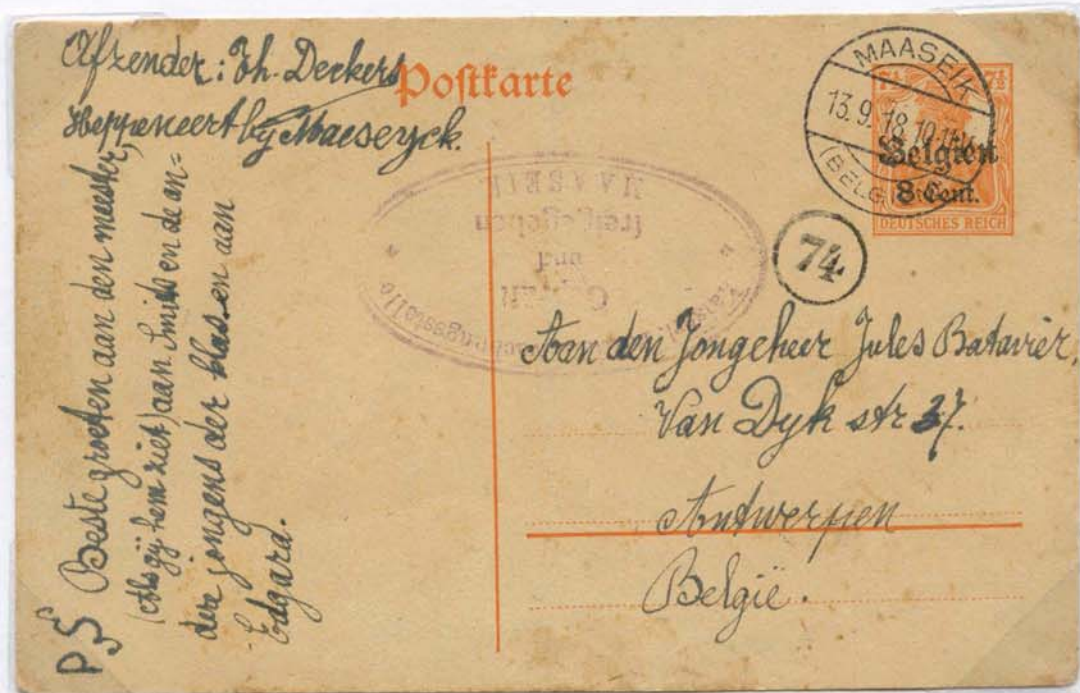 Afzender: Th. Deckers
Heppeneert by Maeseyck.
Postkarte
MAASEIK
13.9.18.10-11V.
(BELG
7½ 7½
Belgien
8 Cent.
DEUTSCHES REICH
74
MAASEIK
freigegeben
und
Aan den Jongeheer Jules Batavier,
Van Dyk str 37.
Antwerpen
België.
PS Beste groeten aan den meester,
(Als gij hem ziet) aan Smits en de an=
dere jongens der klas en aan
Edgard.